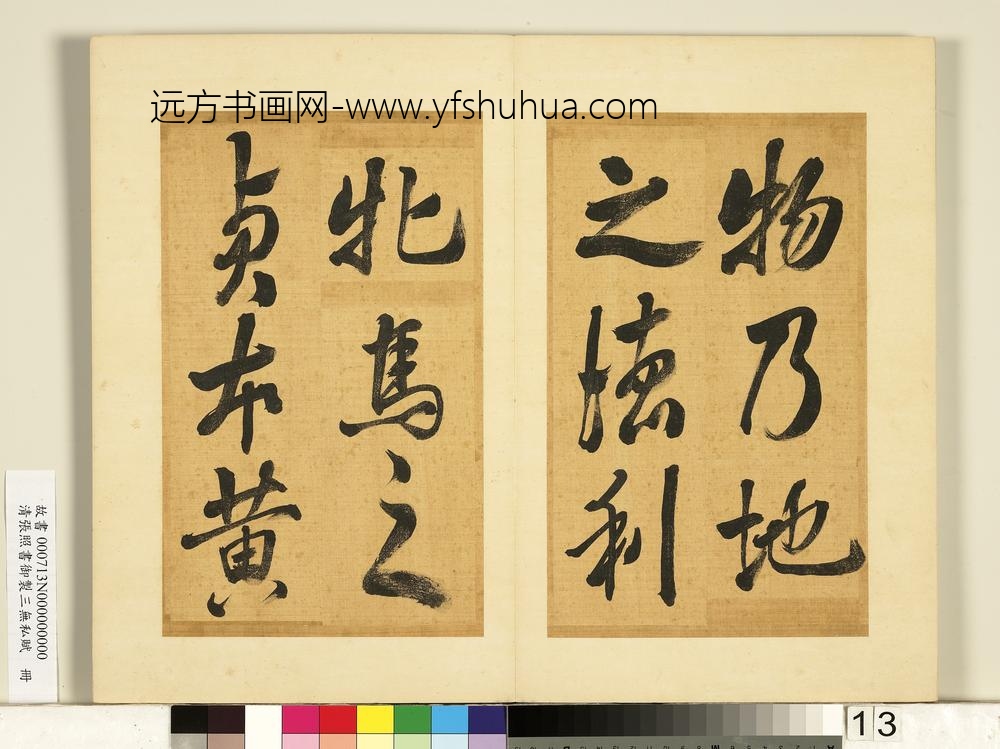 远方书画网-www.yfshuhua.com
物乃地
之德利
牝馬之
貞本黄
故書 000713N000000000
清張照書御製三無私賦 冊
13